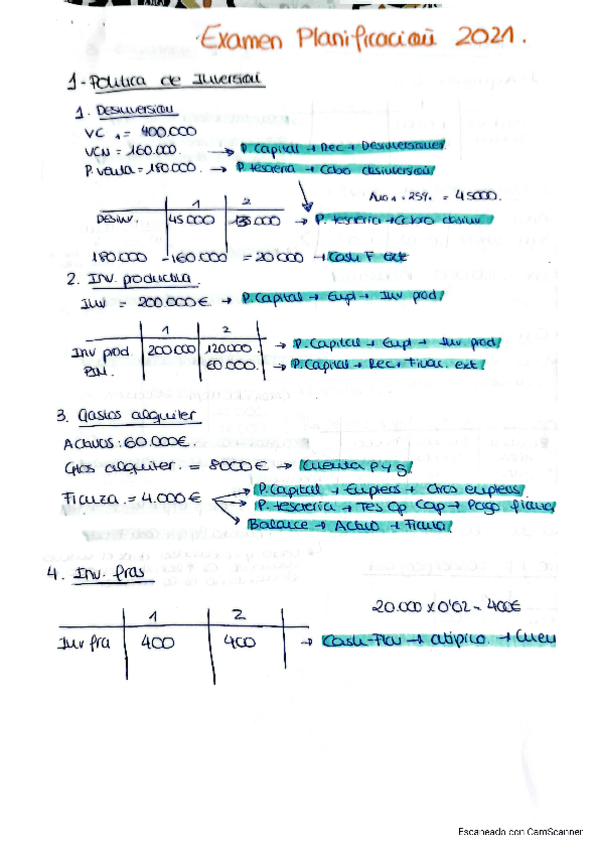 Examen Planificación 2021.
1-Política de Inversión
1. Desinversión
VC = 400.000
VCN = 160.000. → P. Capital → Rec → Desinversiones
P. venta = 180.000. → P. tesorería → Cobro desinversión
Año 1. 25%. = 45000.
1 2
Desinv. 45000 135000 → P. tesorería → Cobro desinv
180.000 - 160.000 = 20000 → Cash F ext
2. Inv. productiva.
Inv = 200.000€. → P. Capital → Empl → Inv prod/
1 2
Inv prod. 200000 120000. → P. Capital → Empl → Inv prod/
60000. → P. Capital → Rec → Finac. ext/
3. Gastos alquiler
Activos: 60.000€.
Gtos alquiler. = 8000€ → Cuenta P y g
Fianza = 4.000€ → P. Capital → Empleos → Otros empleos
→ P. tesorería → Tes Op Cap → Pago fianza
Balance → Activo → Fianza
4. Inv. fras
20.000 x 0'02 = 400€
1 2
Inv fra 400 400 → Cash-Flow → atípico → Cuen
Escaneado con CamScanner